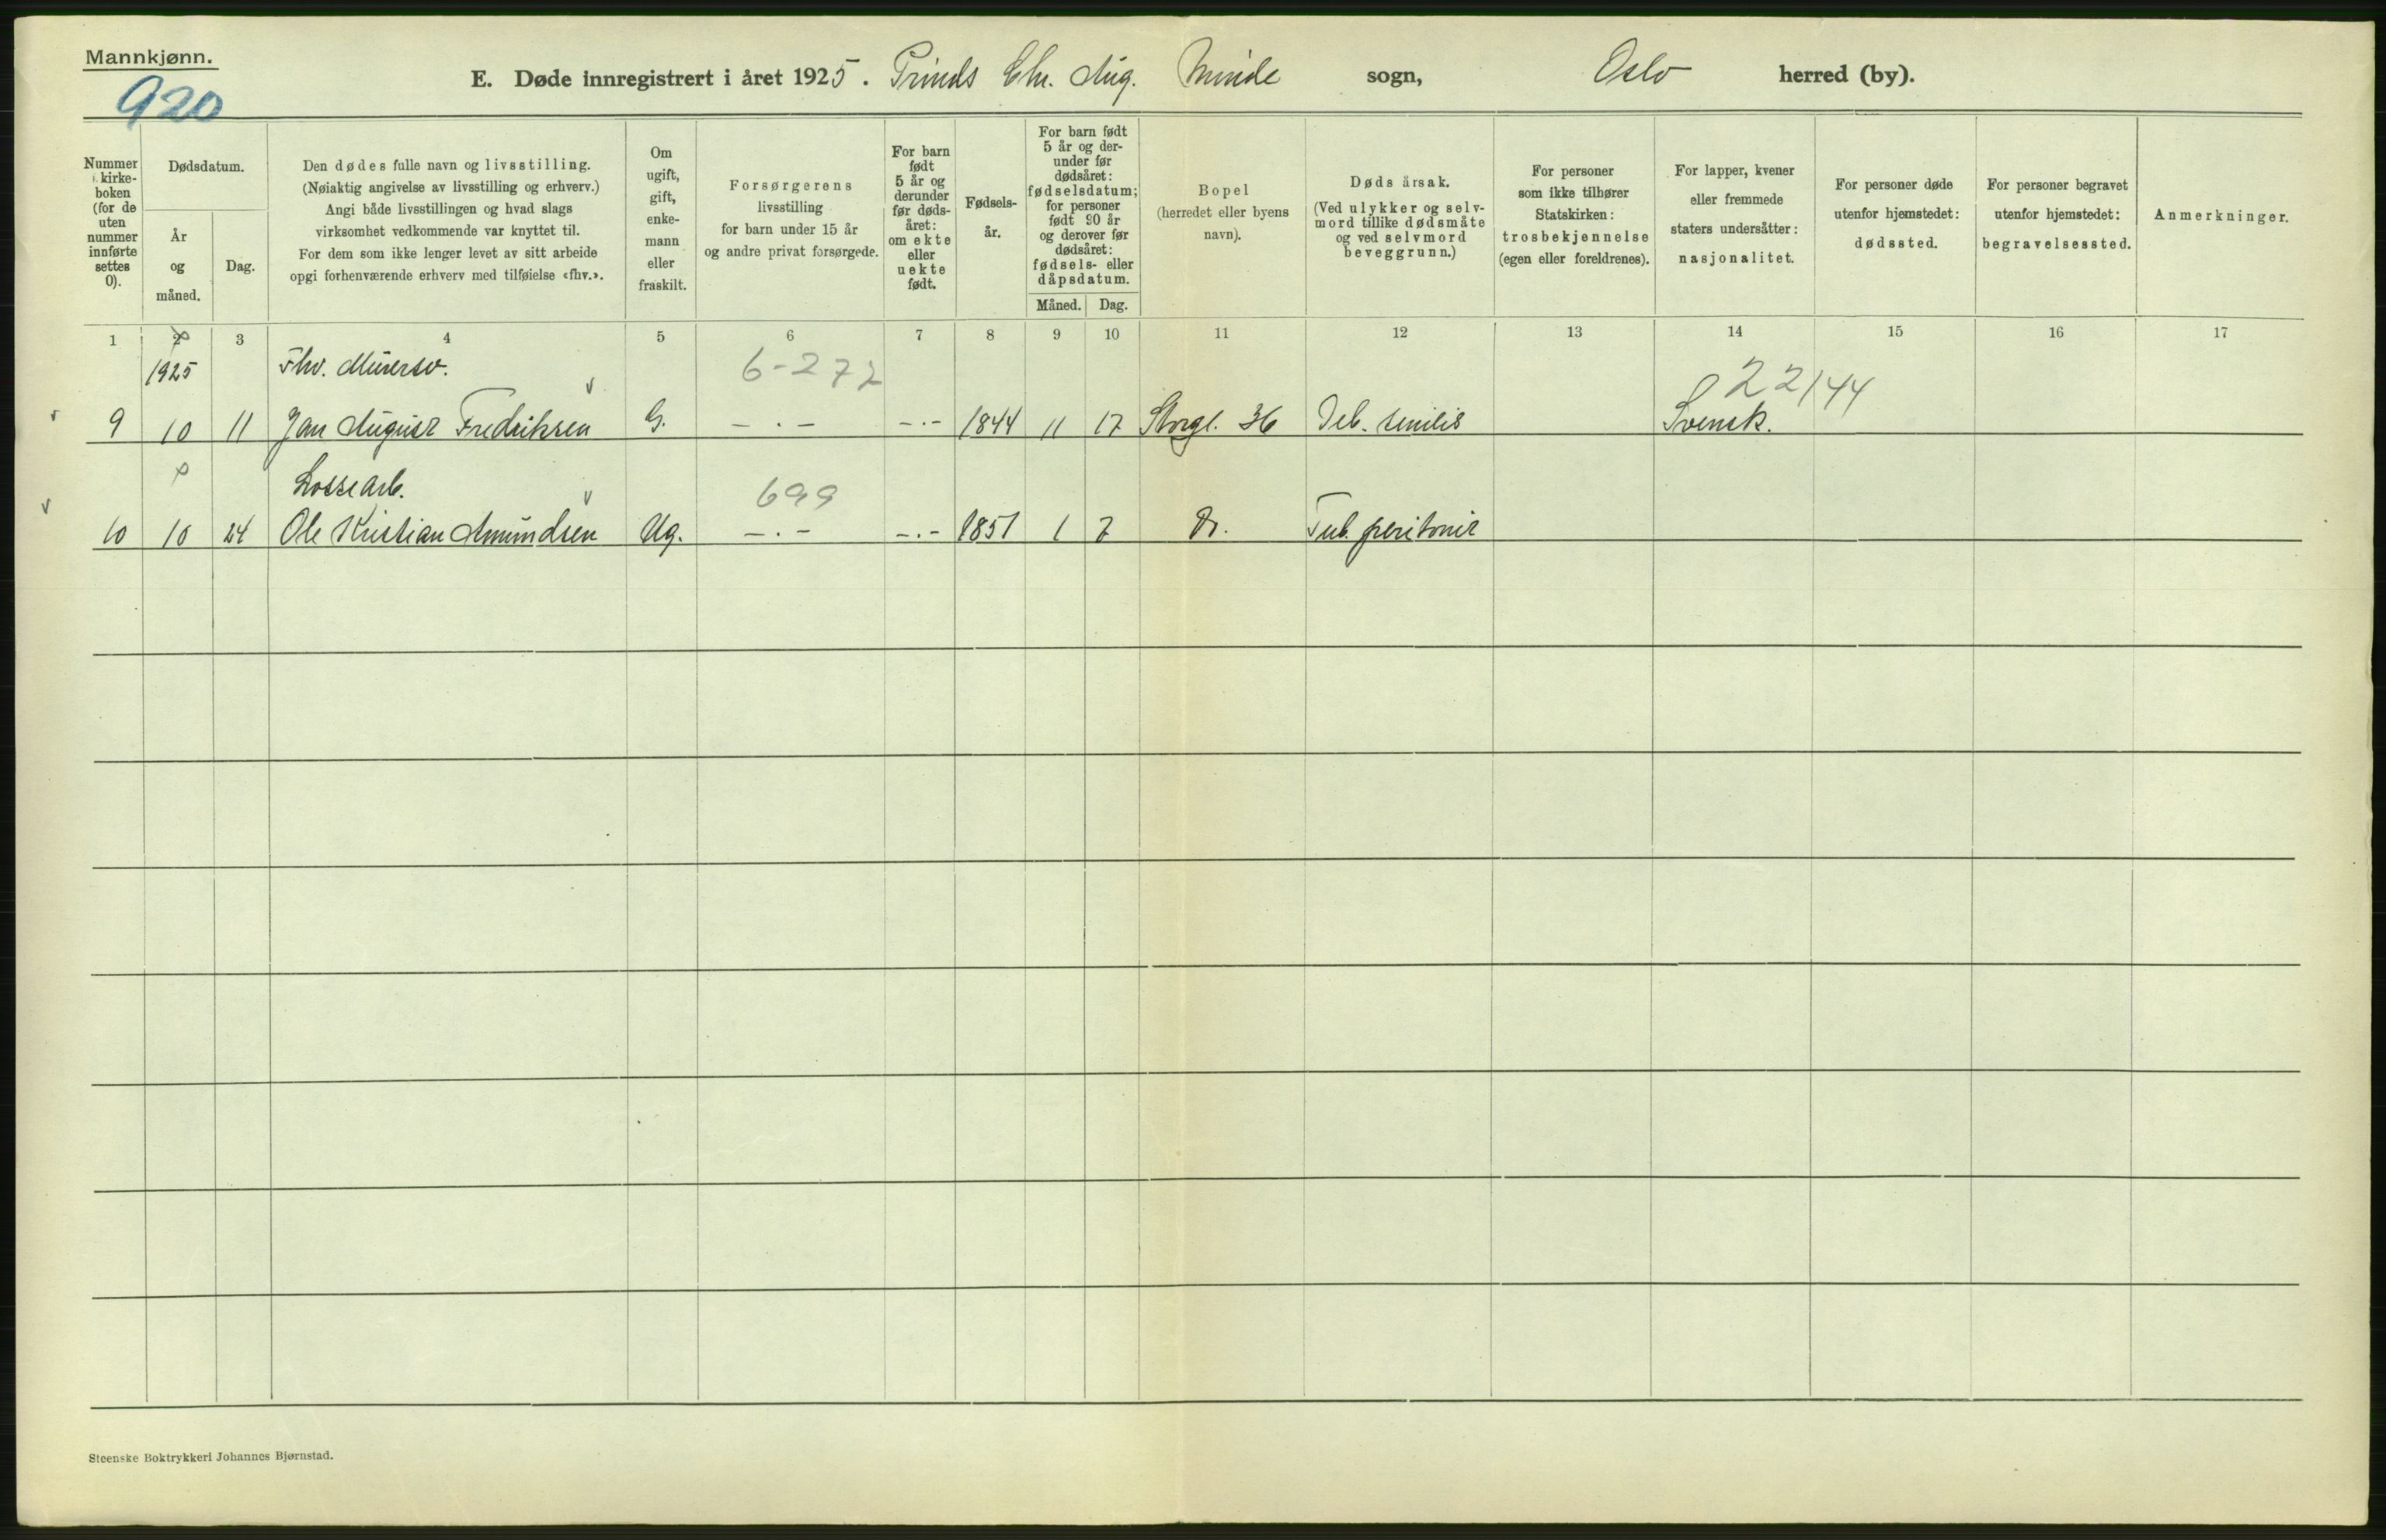 Mannkjønn.
920
E. Døde innregistrert i året 1925. Prinds Chr. Aug. Minde sogn, Oslo herred (by).
Nummer i kirke-boken (for de uten nummer innførte settes 0).
Dødsdatum.
År og måned.
Dag.
Den dødes fulle navn og livsstilling.
(Nøiaktig angivelse av livsstilling og erhverv.)
Angi både livsstillingen og hvad slags
virksomhet vedkommende var knyttet til.
For dem som ikke lenger levet av sitt arbeide
opgi forhenværende erhverv med tilføielse «fhv.».
Om ugift, gift, enke-mann eller fraskilt.
Forsørgerens
livsstilling
for barn under 15 år
og andre privat forsørgede.
For barn født 5 år og derunder før døds-året: om ekte eller uekte født.
Fødsels-år.
For barn født 5 år og der-under før dødsåret: fødselsdatum; for personer født 90 år og derover før dødsåret: fødsels- eller dåpsdatum.
Måned.
Dag.
Bopel
(herredet eller byens
navn).
Dødsårsak.
(Ved ulykker og selv-
mord tillike dødsmåte
og ved selvmord
beveggrunn.)
For personer
som ikke tilhører
Statskirken:
trosbekjennelse
(egen eller foreldrenes).
For lapper, kvener
eller fremmede
staters undersåtter:
nasjonalitet.
For personer døde
utenfor hjemstedet:
dødssted.
For personer begravet
utenfor hjemstedet:
begravelsessted.
Anmerkninger.
1 2 3 4 5 6 7 8 9 10 11 12 13 14 15 16 17
1925 Fhv. Murersv. 6-272 22/44
9 10 11 Jan August Fredriksen G. — . — — . — 1844 11 17 Storgt. 36 Deb. senilis Svensk.
Lossearb. 699
10 10 24 Ole Kristian Amundsen Ug. — . — — . — 1851 1 7 Do. Tub. peritonit
Steenske Boktrykkeri Johannes Bjørnstad.